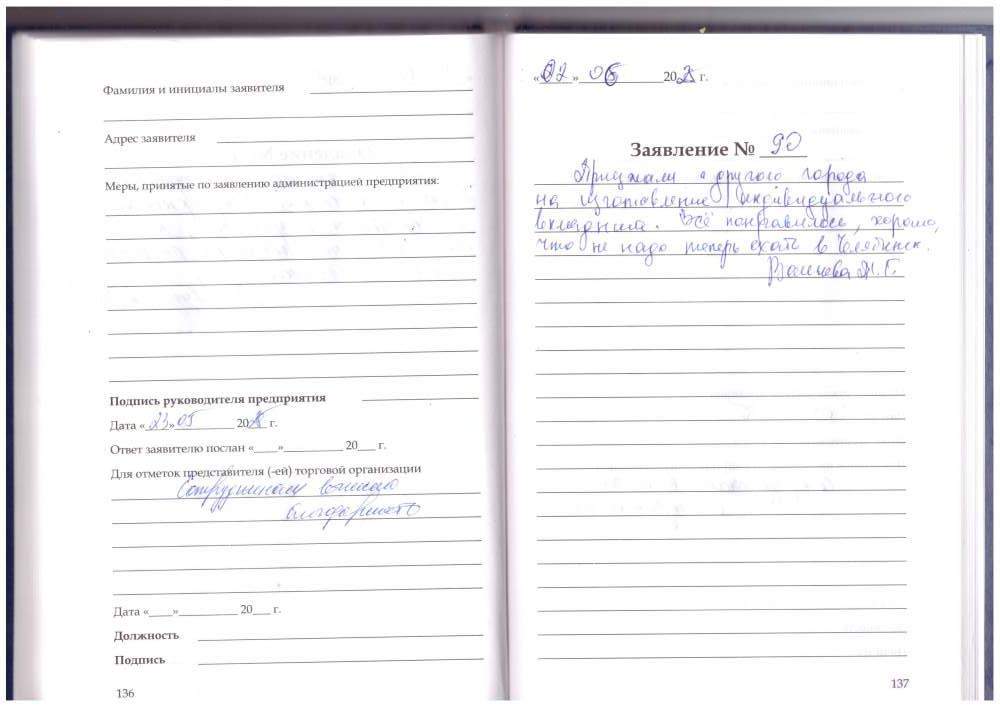 Фамилия и инициалы заявителя
Адрес заявителя
Меры, принятые по заявлению администрацией предприятия:
Подпись руководителя предприятия
Дата «23» 05 20 г.
Ответ заявителю послан «____»__________ 20___ г.
Для отметок представителя (-ей) торговой организации
Сотрудникам
благодарность
Дата «____»__________ 20___ г.
Должность
Подпись
136
«22» 05 20 г.
Заявление № 90
Приезжали с другого города
на изготовление индивидуального
вкладыша. Всё понравилось, хорошо,
что не надо теперь ехать в Челябинск.
137